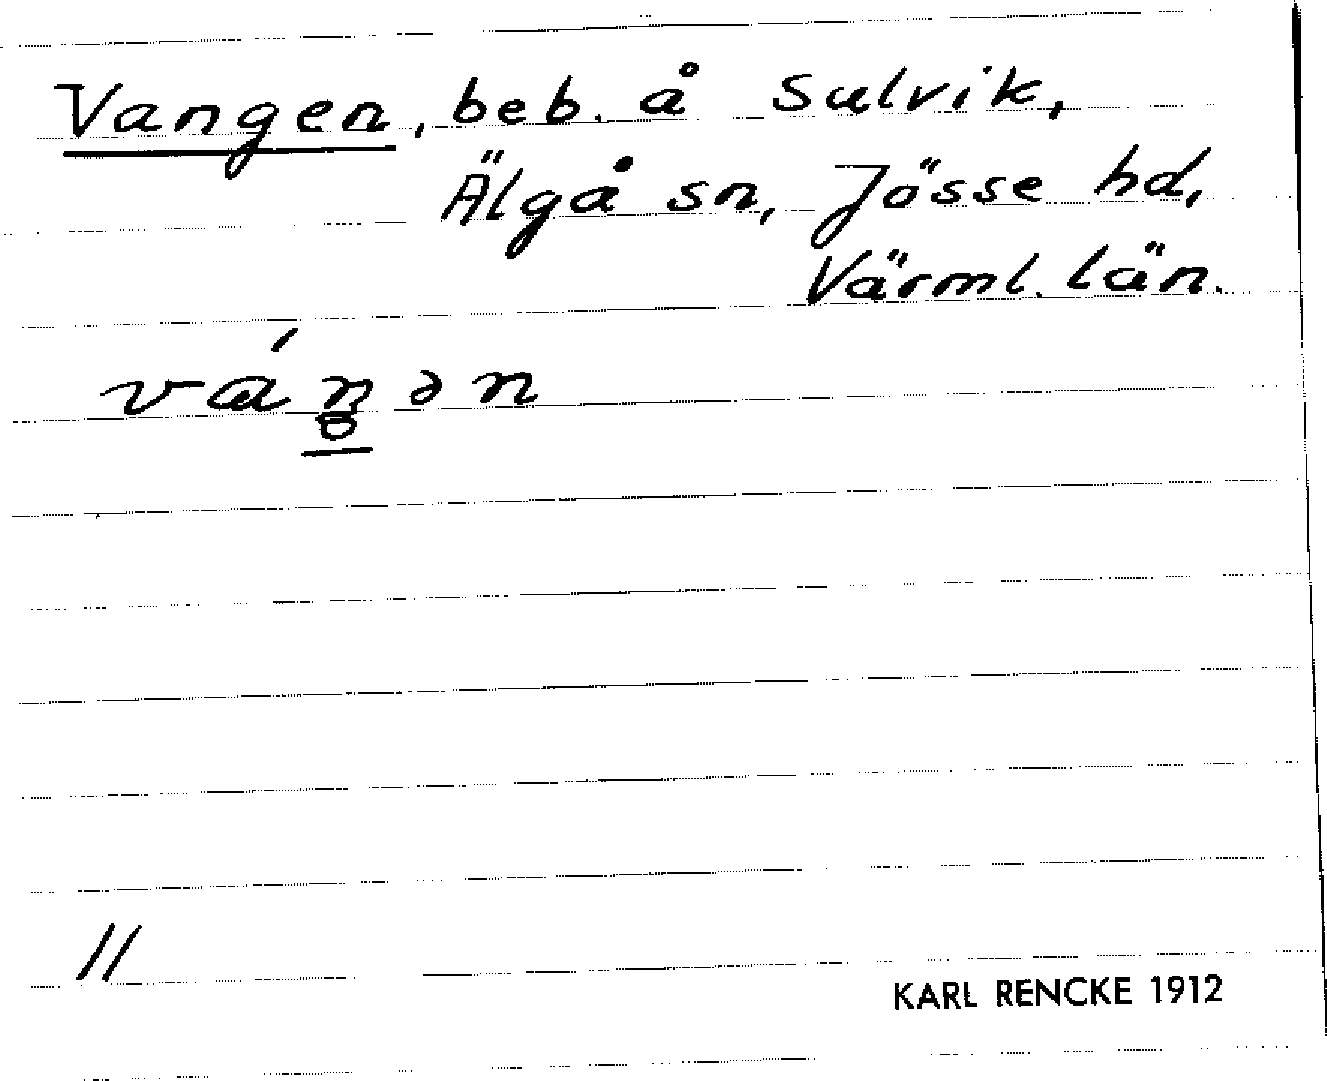 Vangen, beb. å Sulvik,
Älgå sn, Jösse hd,
Värml. län.
11
KARL RENCKE 1912